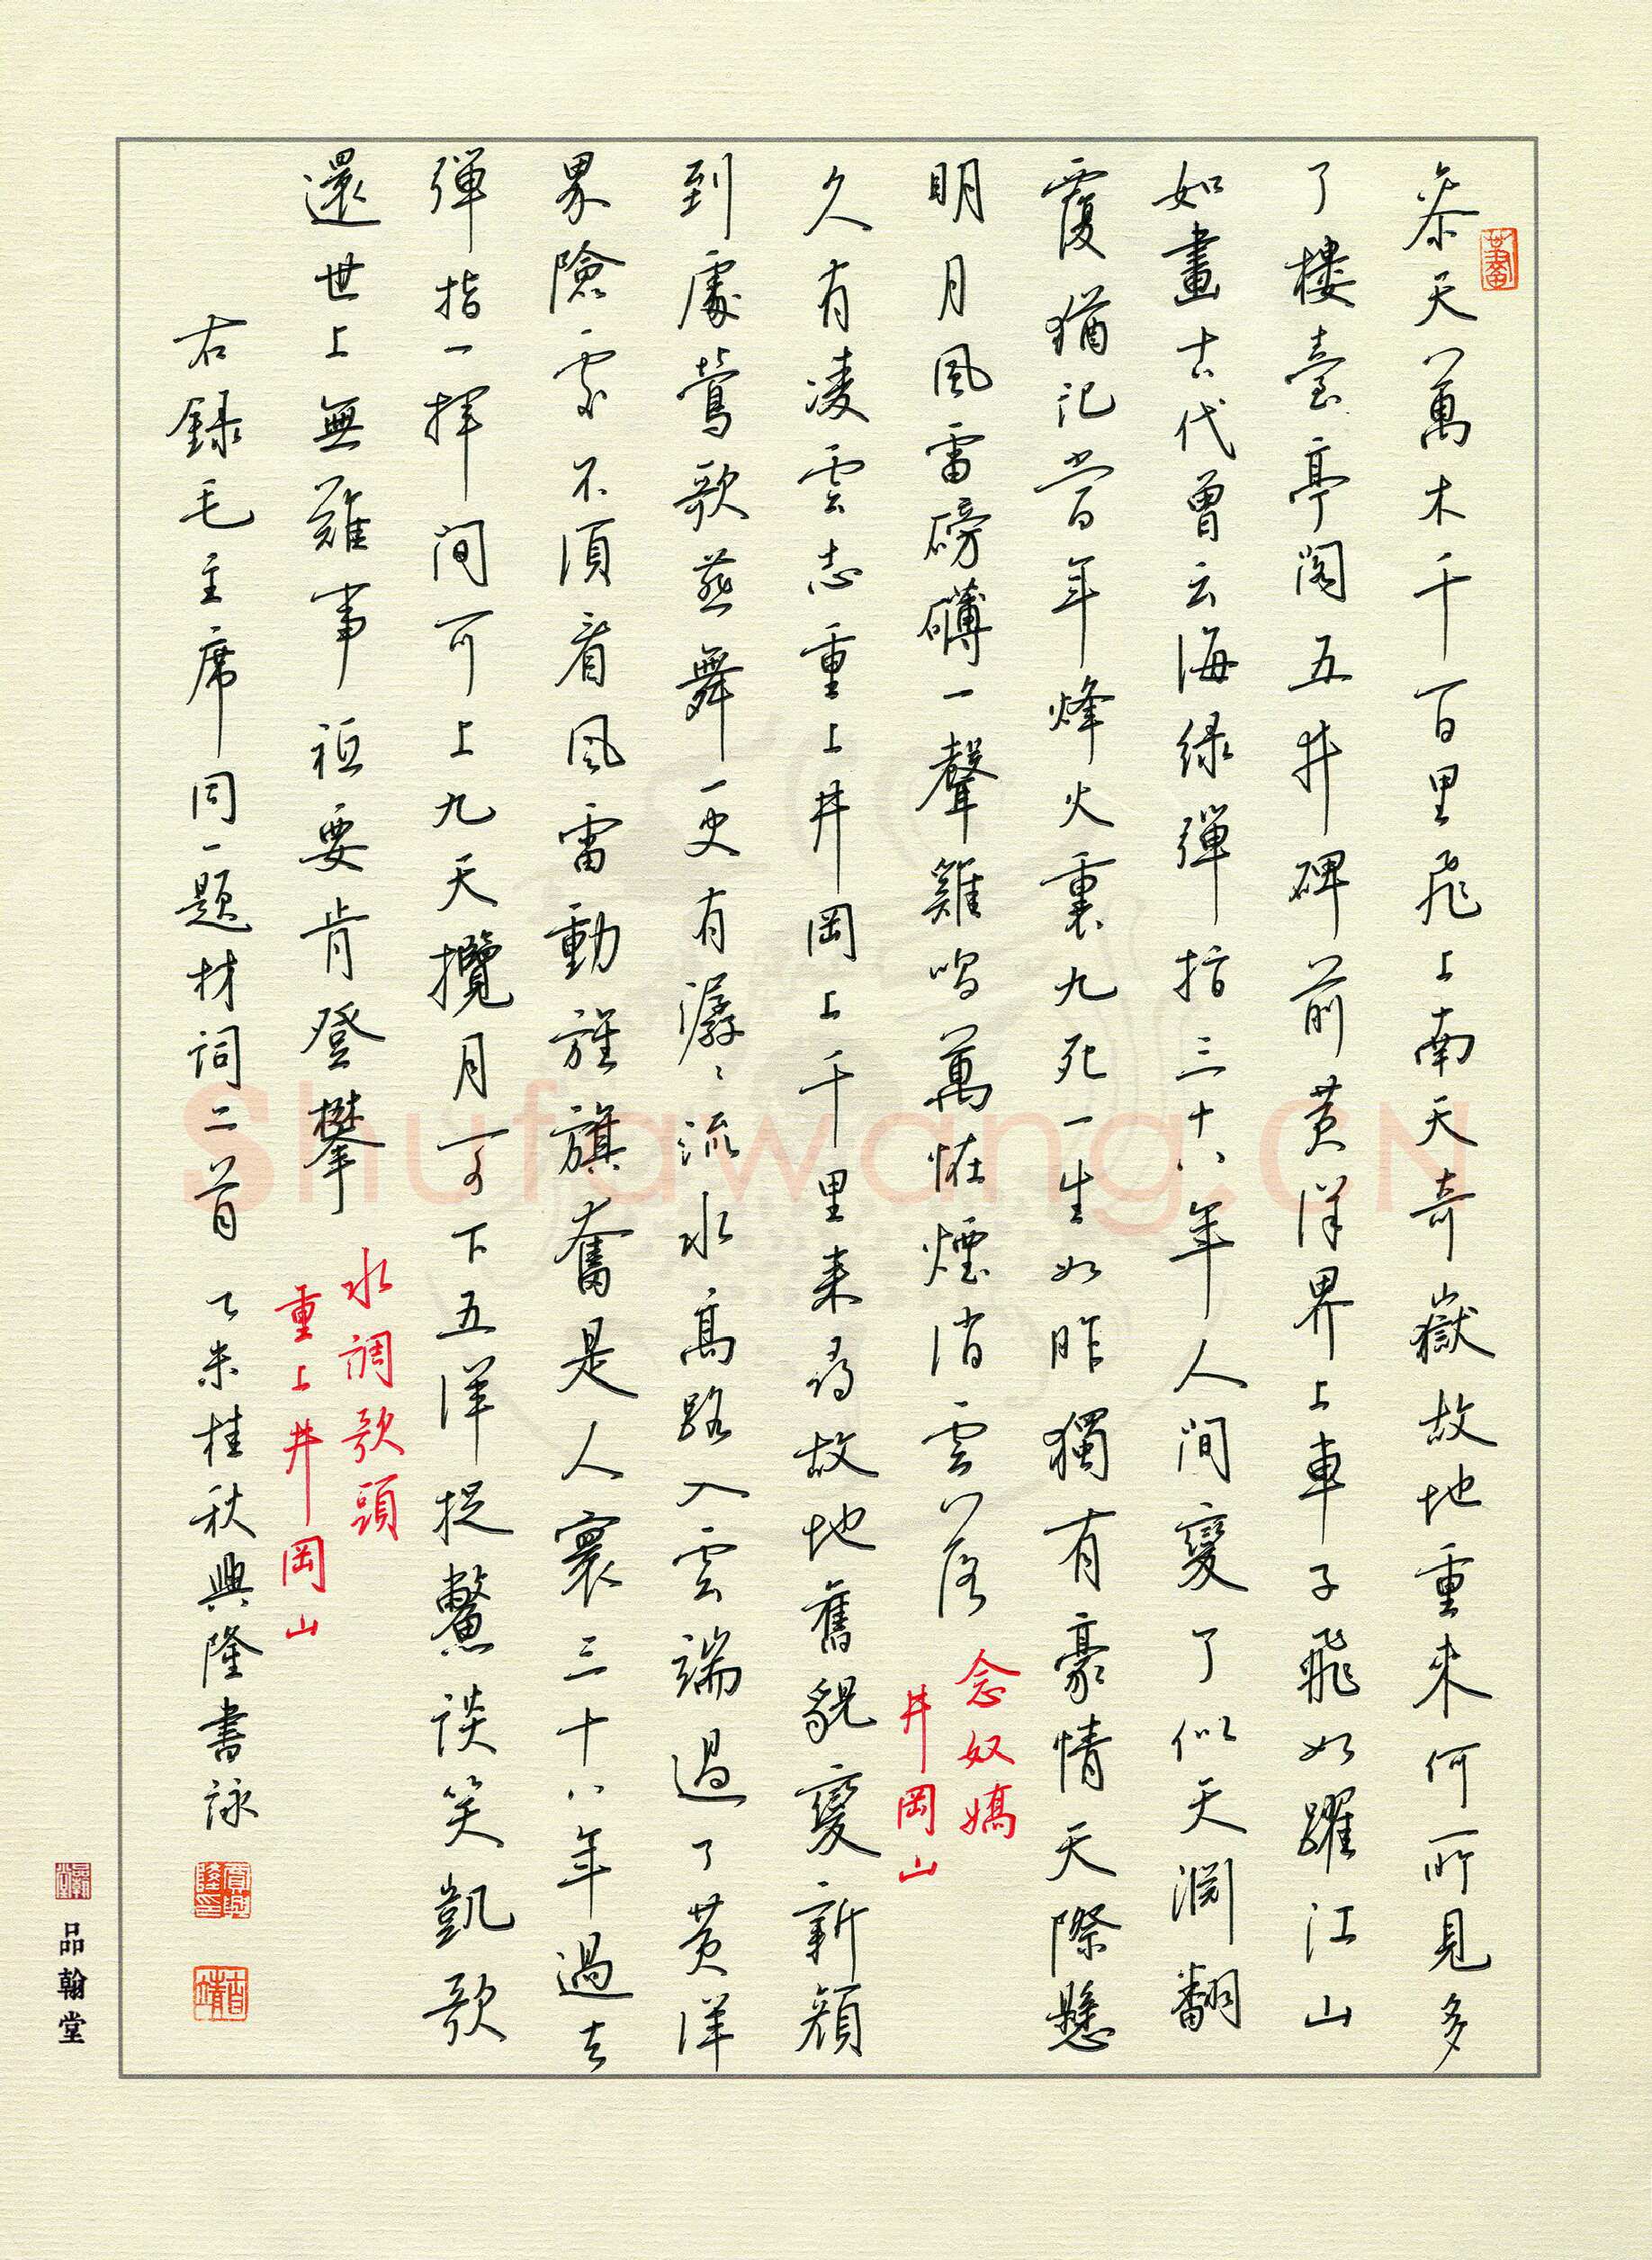 參天萬木千百里飛上南天奇嶽故地重來何所見多
了樓臺亭閣五井碑前黄洋界上車子飛如躍江山
如畫古代曾云海綠彈指三十八年人間變了似天淵翻
覆猶記當年烽火裏九死一生如昨獨有豪情天際懸
明月風雷磅礴一聲雞鳴萬怪煙消雲落
念奴嬌
井岡山
久有凌雲志重上井岡上千里来尋故地舊貌變新顔
到處鶯歌燕舞更有潺々流水高路入雲端過了黄洋
界險處不須看風雷動旌旗奮是人寰三十八年過去
彈指一揮間可上九天攬月可下五洋捉鱉談笑凱歌
還世上無難事祗要肯登攀
水調歌頭
重上井岡山
右録毛主席同一題材詞二首 乙未桂秋興隆書詠
品翰堂
Shufawang.CN